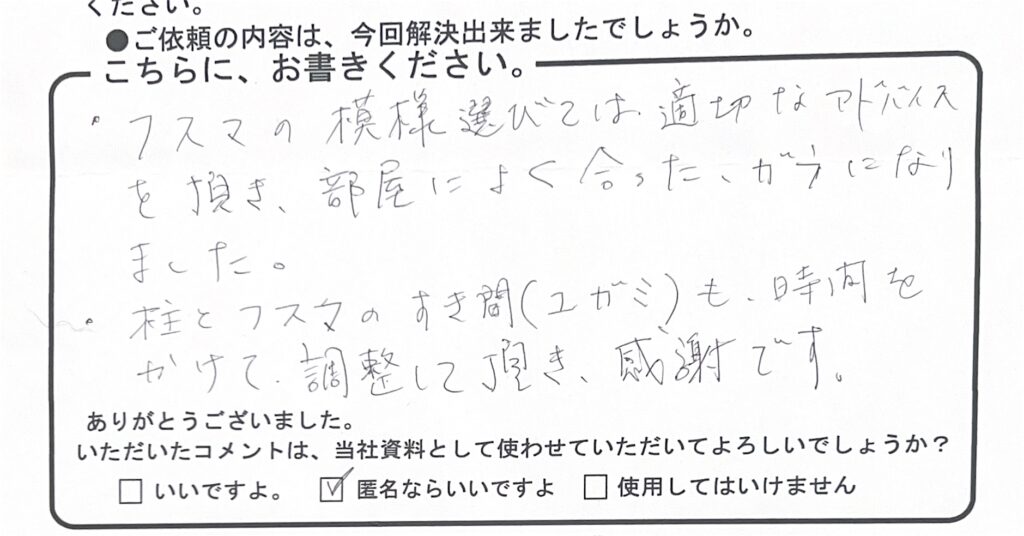 ください。
●ご依頼の内容は、今回解決出来ましたでしょうか。
こちらに、お書きください。
・フスマの模様選びでは、適切なアドバイス
を頂き、部屋によく合った、ガラになり
ました。
・柱とフスマのすき間(ユガミ)も、時間を
かけて、調整して頂き、感謝です。
ありがとうございました。
いただいたコメントは、当社資料として使わせていただいてよろしいでしょうか？
□ いいですよ。 ☑ 匿名ならいいですよ □ 使用してはいけません